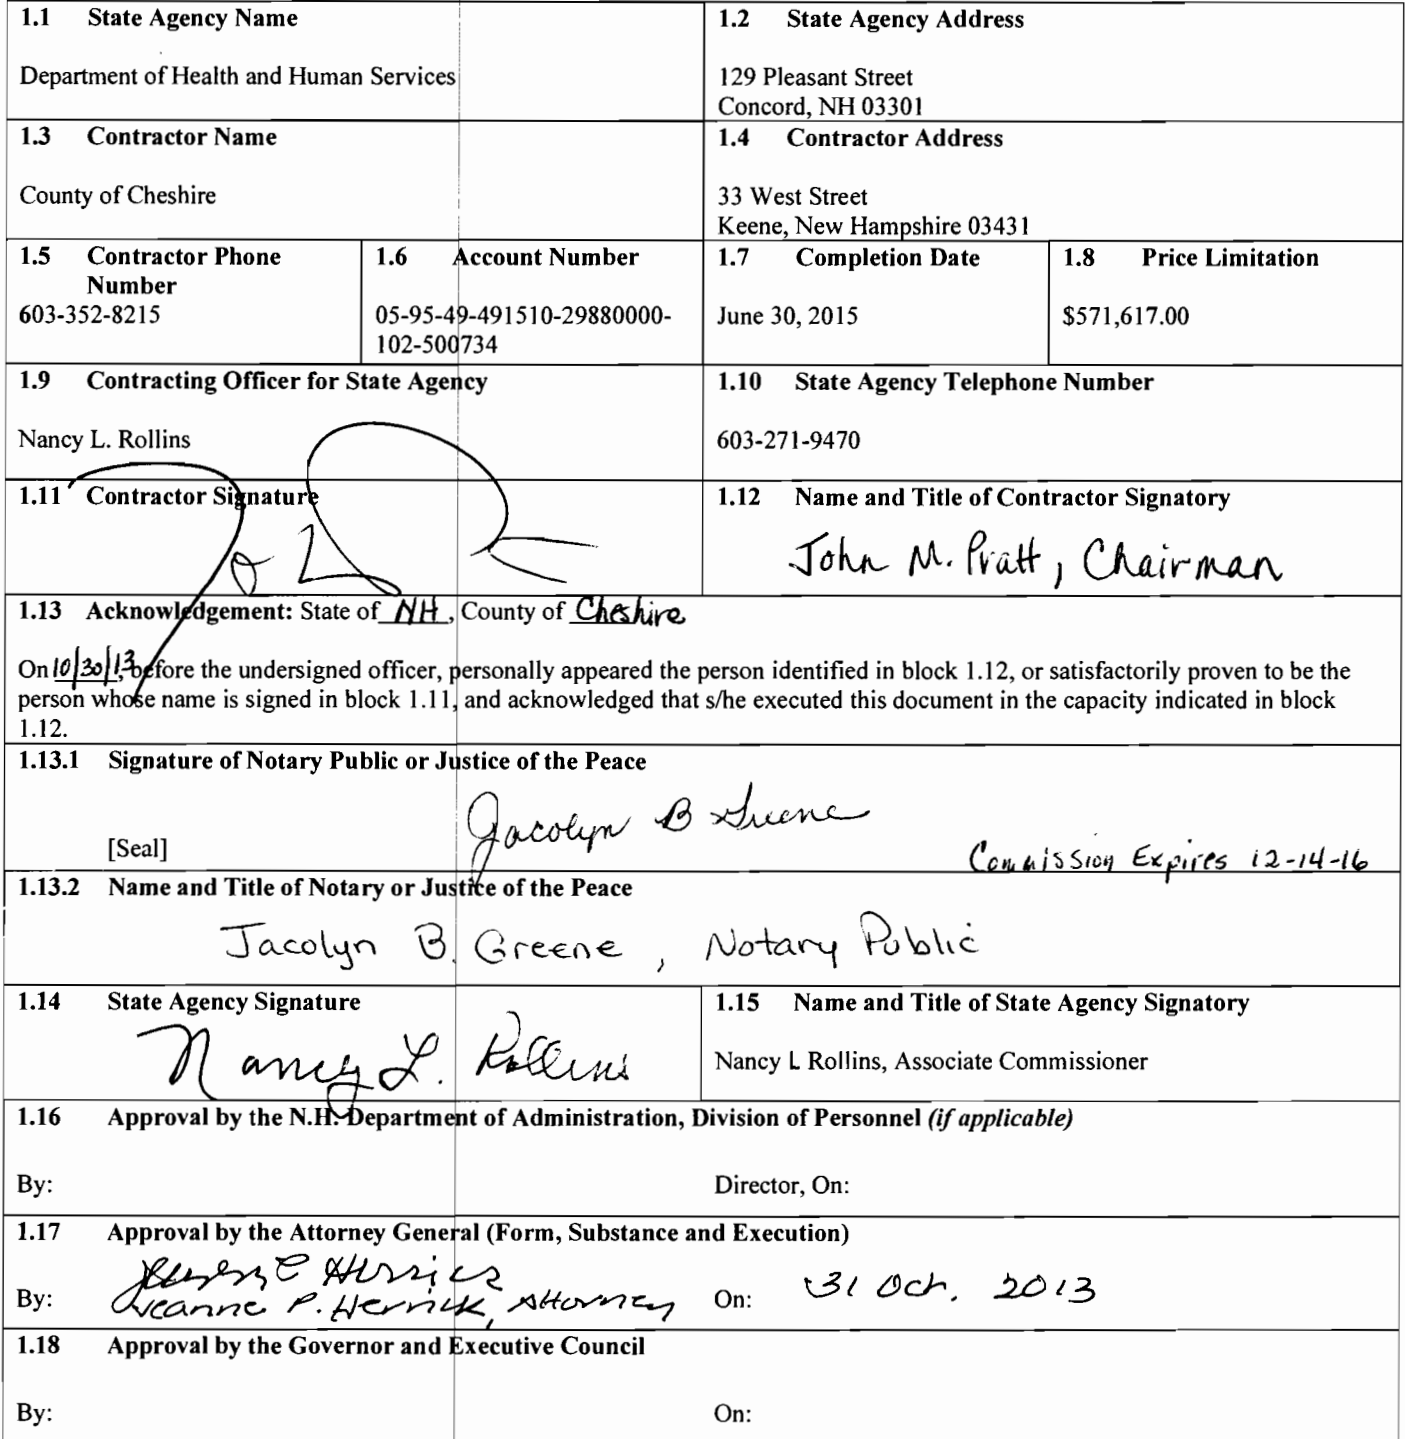 1.1 State Agency Name
Department of Health and Human Services
1.2 State Agency Address
129 Pleasant Street
Concord, NH 03301
1.3 Contractor Name
County of Cheshire
1.4 Contractor Address
33 West Street
Keene, New Hampshire 03431
1.5 Contractor Phone
Number
603-352-8215
1.6 Account Number
05-95-49-491510-29880000-
102-500734
1.7 Completion Date
June 30, 2015
1.8 Price Limitation
$571,617.00
1.9 Contracting Officer for State Agency
Nancy L. Rollins
1.10 State Agency Telephone Number
603-271-9470
1.11 Contractor Signature
1.12 Name and Title of Contractor Signatory
John M. Pratt, Chairman
1.13 Acknowledgement: State of NH, County of Cheshire
On 10/30/13, before the undersigned officer, personally appeared the person identified in block 1.12, or satisfactorily proven to be the
person whose name is signed in block 1.11, and acknowledged that s/he executed this document in the capacity indicated in block
1.12.
1.13.1 Signature of Notary Public or Justice of the Peace
Jacolyn B Greene
[Seal]
Commission Expires 12-14-16
1.13.2 Name and Title of Notary or Justice of the Peace
Jacolyn B. Greene, Notary Public
1.14 State Agency Signature
Nancy L. Rollins
1.15 Name and Title of State Agency Signatory
Nancy L Rollins, Associate Commissioner
1.16 Approval by the N.H. Department of Administration, Division of Personnel (if applicable)
By:
Director, On:
1.17 Approval by the Attorney General (Form, Substance and Execution)
By: Jeanne P. Herrick, Attorney
On: 31 Oct. 2013
1.18 Approval by the Governor and Executive Council
By:
On: